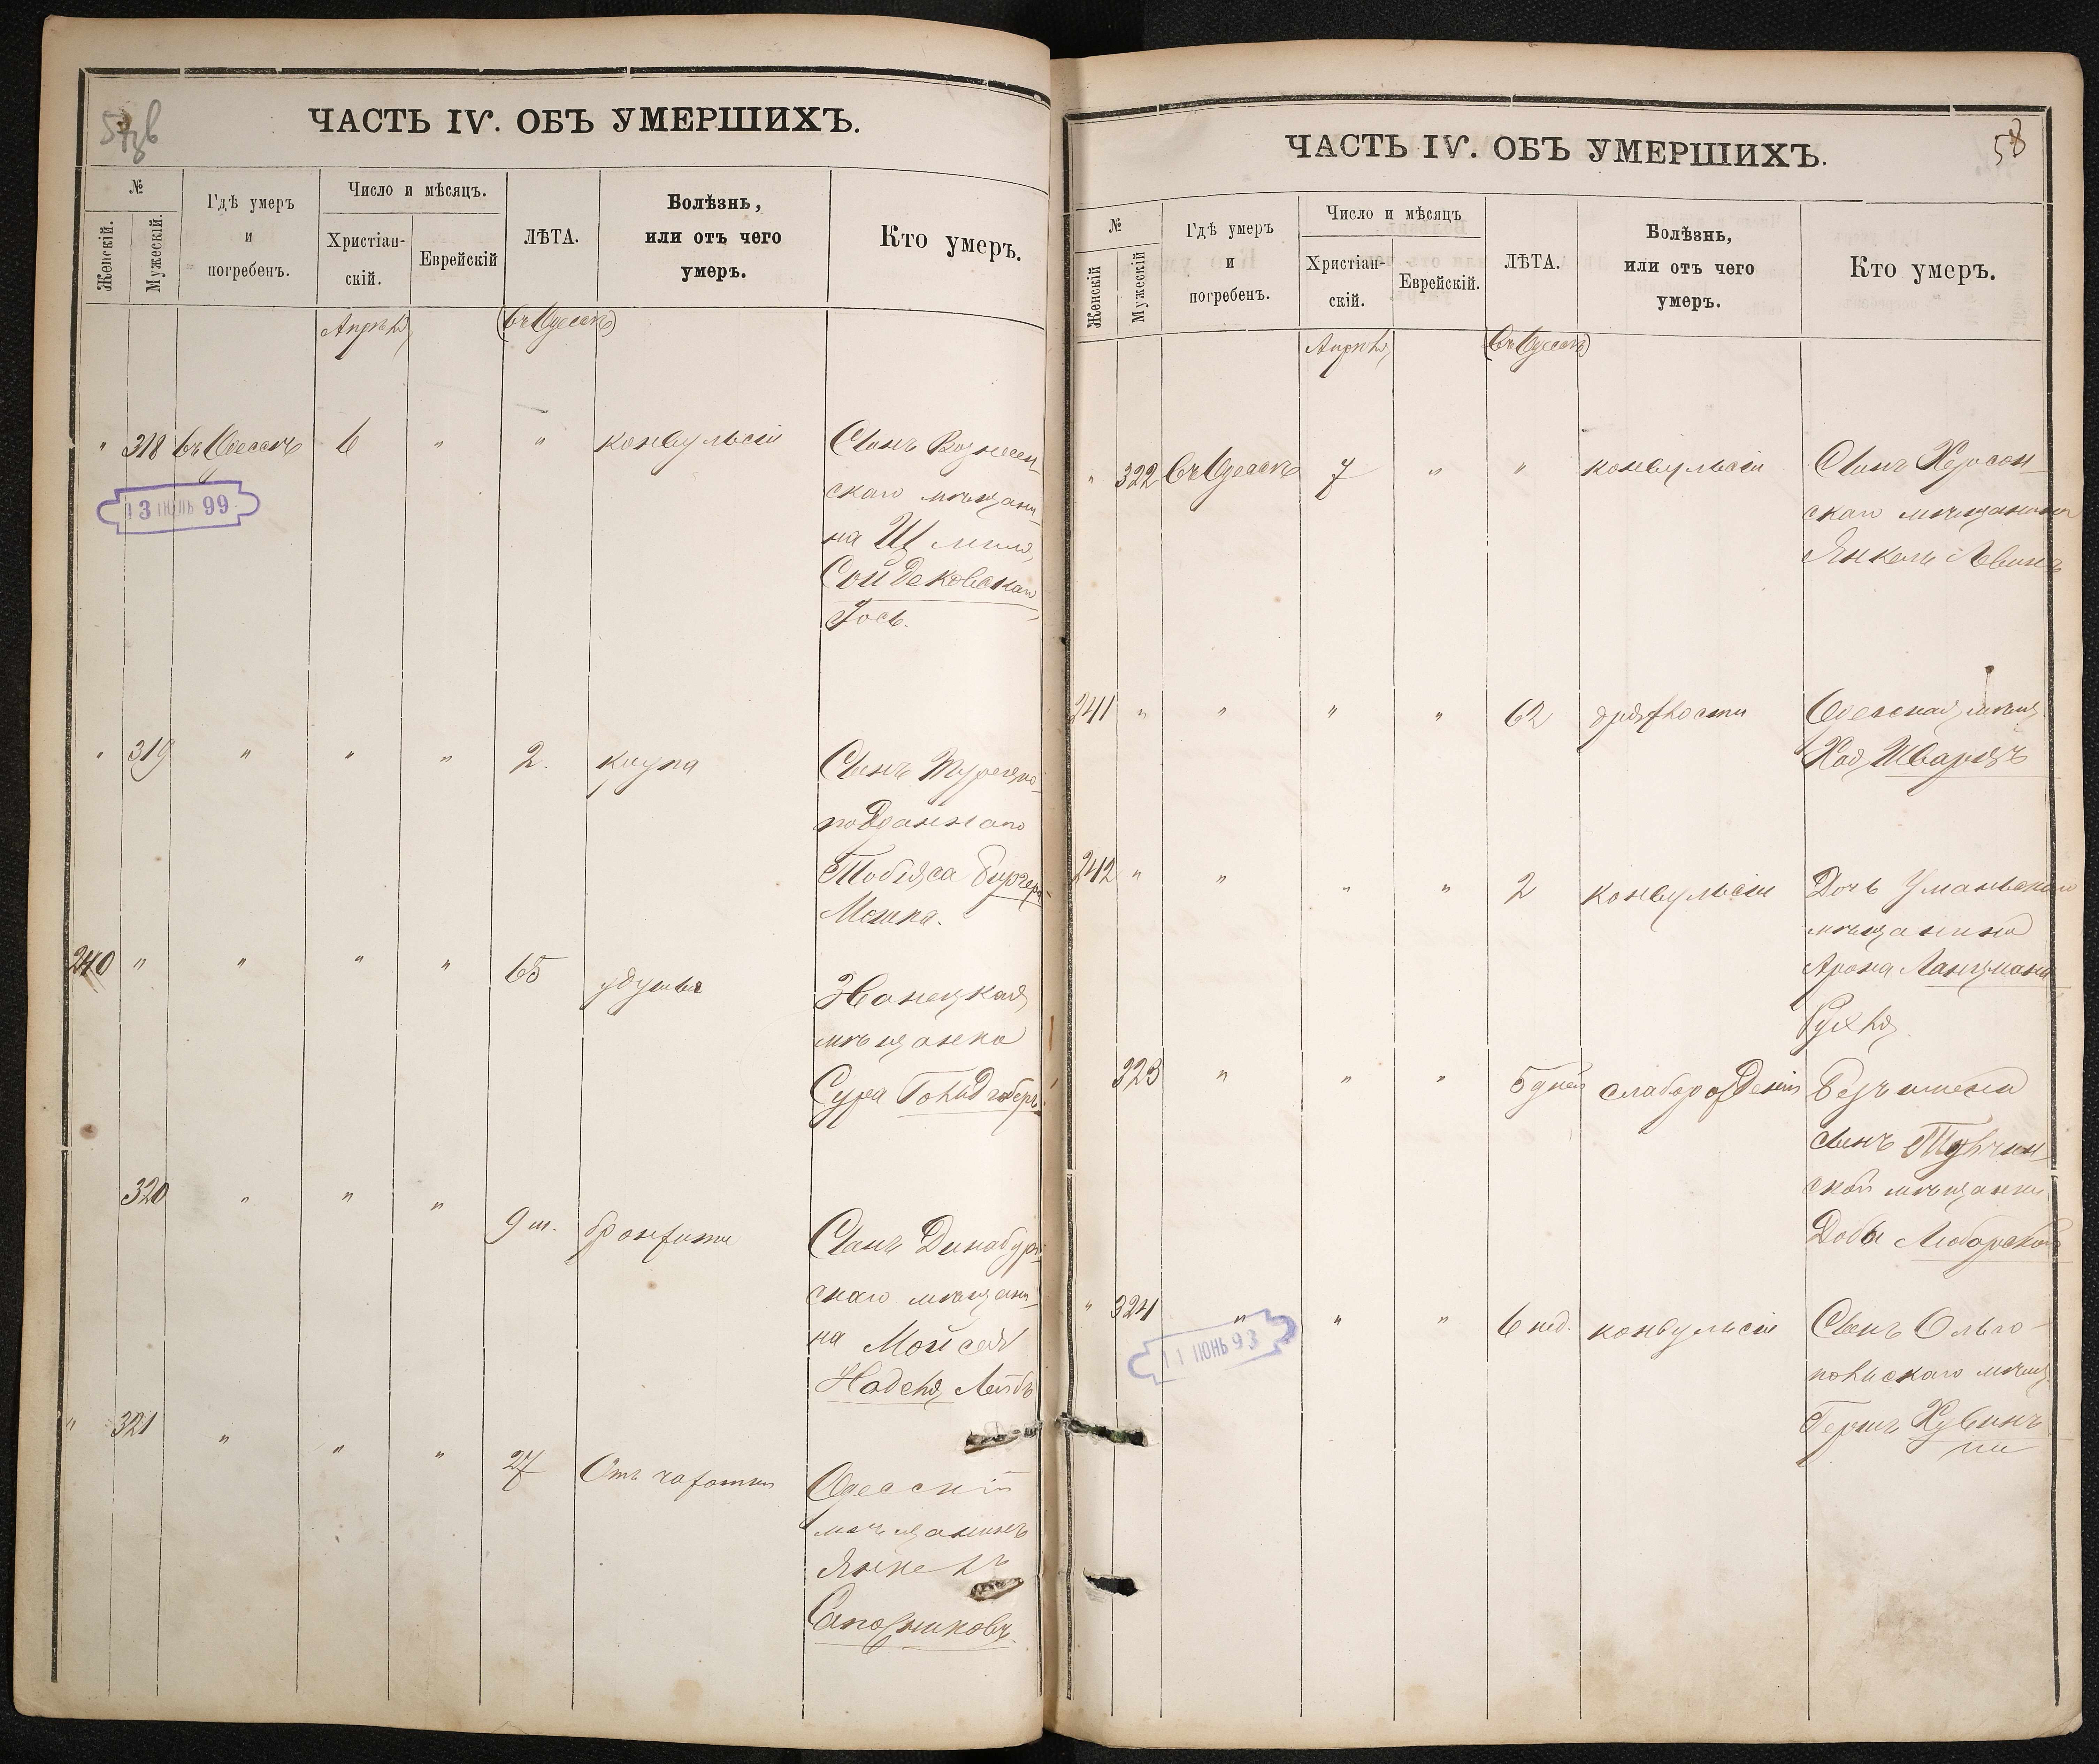 ЧАСТЬ IV. ОБЪ УМЕРШИХЪ.
№
Женскій.
Мужескій.
Гдѣ умеръ
и
погребенъ.
Число и мѣсяцъ.
Христіан-
скій.
Еврейскій
ЛѢТА.
Болѣзнь,
или отъ чего
умеръ.
Кто умеръ.
Апрѣля
(въ Одессѣ)
" 318 въ Одессѣ 6 " " конвульсіи Сынъ Вознесен-
скаго мѣщани-
на
Сойдековскаго
Іось.
13 ІЮЛЬ 99
" 319 " " " 2. крупа Сынъ Турецко-
подданнаго
Тобіяса Бургера
Мошка.
240 " " " " 65 удушья
мѣщанка
Сура Гольдгоберъ
320 " " " 9 м. бронхита Сынъ Динабург-
скаго мѣщани-
на Мойсея
Наделя Лейбъ
" 321 " " " 27 Отъ чахотки Одесскій
мѣщанинъ
Янкель
Сапожниковъ.
ЧАСТЬ IV. ОБЪ УМЕРШИХЪ.
58
№
Женскій
Мужескій
Гдѣ умеръ
и
погребенъ.
Число и мѣсяцъ
Христіан-
скій.
Еврейскій.
ЛѢТА.
Болѣзнь,
или отъ чего
умеръ.
Кто умеръ.
Апрѣля
(въ Одессѣ)
" 322 въ Одессѣ 7 " " конвульсіи Сынъ Херсон-
скаго мѣщанина
Янкель Левинъ
241 " " " " 62 дряхлости Одесская мѣщ.
Хая Шварцъ
242 " " " " 2 конвульсіи Дочь Уманьскаго
мѣщанина
Арона Ланцмана
Рухля
323 " " " 5 дней слаборожденія Безъ имени
сынъ Тульчин-
ской мѣщанки
Добы Люборской
" 324 " " " 6 нед. конвульсіи Сынъ Ольго-
польскаго мѣщ.
Гершъ Хувинъ
11 ІЮНЬ 93